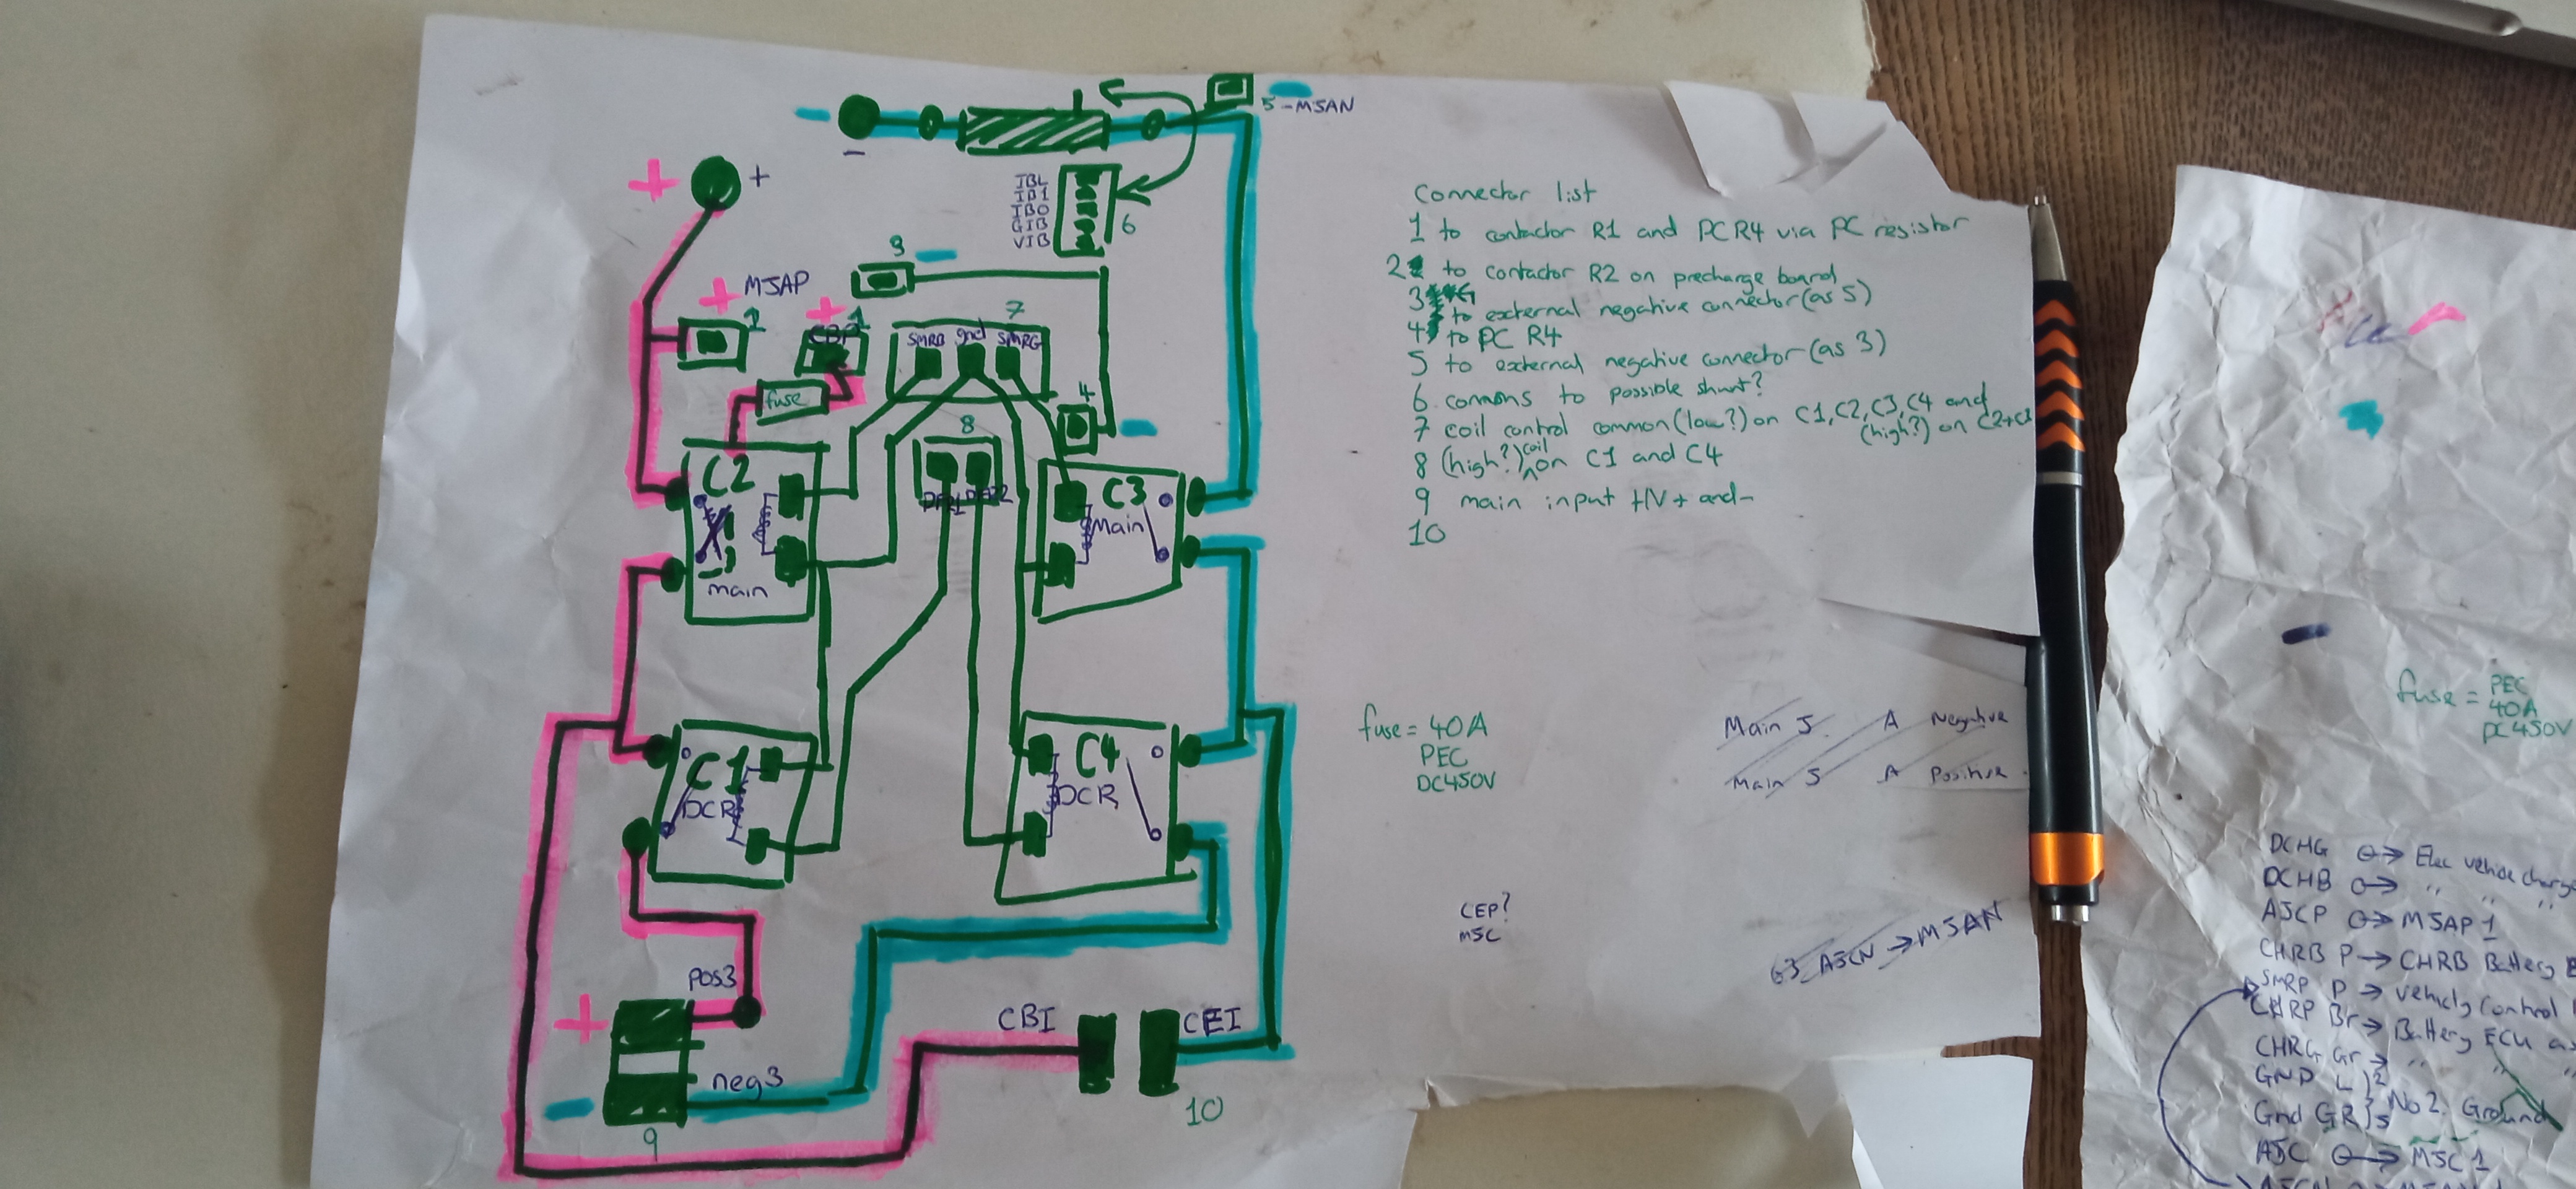 5-MJAN
-
+
+
-
IBL
IB1
IB0
GIB
VIB
6
3
-
+ MJAP
+
1
1
CBP
7
SMRB gnd SMRG
fuse
4
-
8
C2
main
C3
Main
C1
DCR
C4
DCR
pos3
+
neg3
-
9
CBI
CEI
10
Connector list
1 to contactor R1 and PCR4 via PC resistor
2 to contactor R2 on precharge board
3 to external negative connector (as 5)
4 to PC R4
5 to external negative connector (as 3)
6. comms to possible shunt?
7 coil control common (low?) on C1, C2, C3, C4 and
(high?) on C2+C3
8 (high?) coil on C1 and C4
9 main input HV + and -
10
fuse = 40A
PEC
DC450V
Main J. A Negative
Main J A Positive
CEP?
MJC
G3 AJCN → MJAN
fuse = PEC
40A
DC450V
DCHG → Elec vehicle charge
DCHB → " "
AJCP → MJAP 1
CHRB P → CHRB Battery
SMRP P → vehicle control
CHRP Br → Battery ECU
CHRG Gr → " "
GND L } 2
Gnd GR } 5 No 2. Ground
AJC → MJC 1